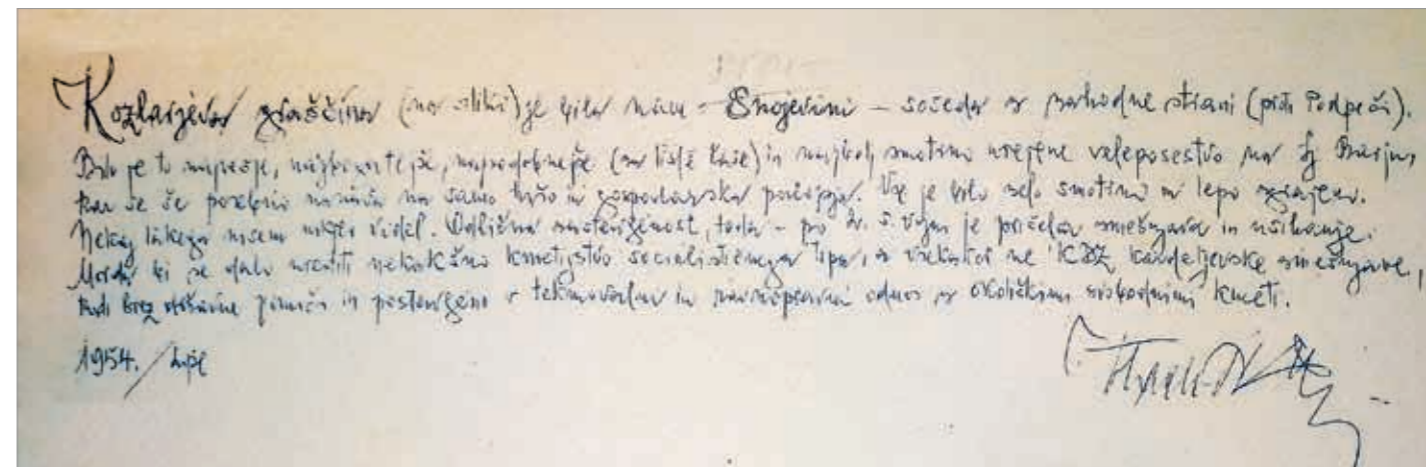 Kozlarjeva graščina (na sliki) je bila nam – Snojevim – soseda z zahodne strani (proti Podpeči).
Bilo je to največje, najbogatejše, (za tiste čase) in najbolj smotrno urejeno veleposestvo na Lj Barju,
kar se še posebno nanaša na samo hišo in gospodarska poslopja. Vse je bilo zelo smotrno in lepo zgrajeno.
Nekaj takega nisem nikjer videl. Odlična, toda – po 2. s. vojni je pričela zmešnjava in uničevanje.
Morda bi se dalo urediti nekakšno kmetijstvo socialističnega tipa, a vsekakor ne KDZ kardeljevske zmešnjave,
tudi brez državne pomoči in postavljeno v tekmovalni in ravnopravni odnos z okoliškimi svobodnimi kmeti.
1954. /